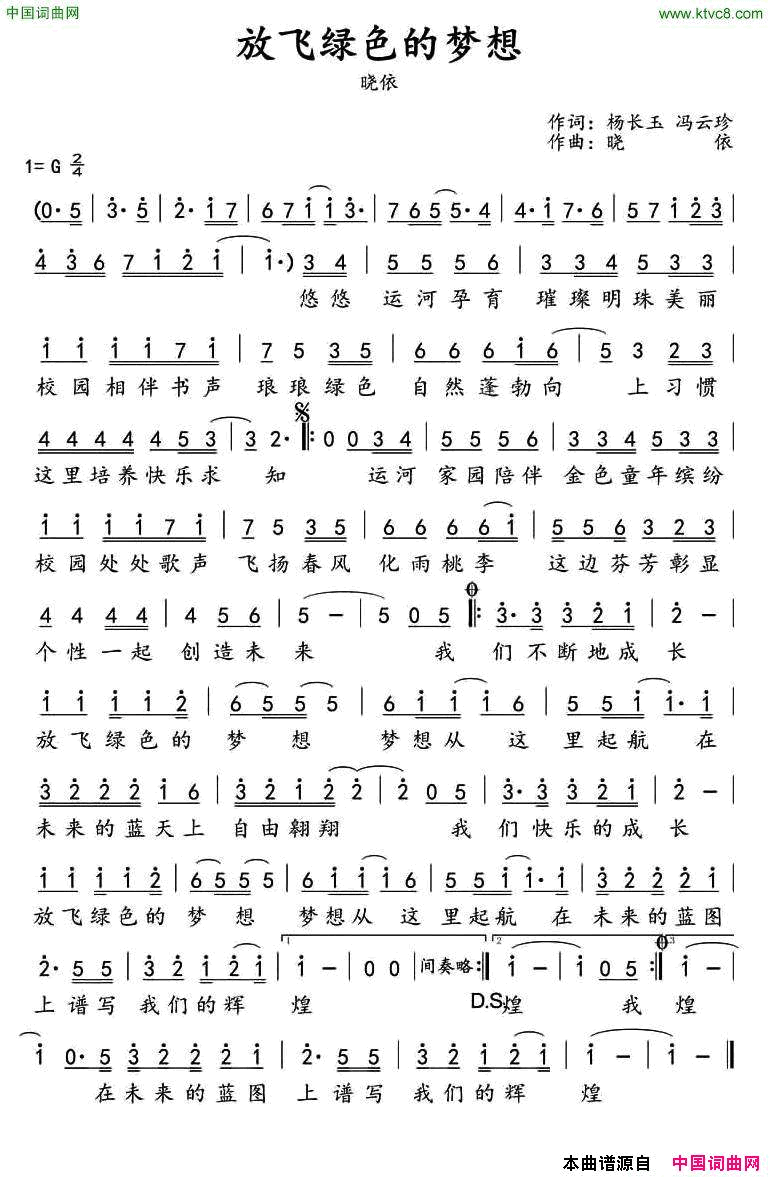 中国词曲网 www.ktvc8.com
放飞绿色的梦想
晓依
作词：杨长玉 冯云珍
作曲：晓 依
1=G 2/4
(0·5 | 3·5 | 2·1 7 | 6 7 1 1 3· | 7 6 5 5·4 | 4·1 7·6 | 5 7 1 2 3 |
4 3 6 7 1 2 1 | 1·) 3 4 | 5 5 5 6 | 3 3 4 5 3 3 |
悠悠 运河孕育 璀璨明珠美丽
1 1 1 1 7 1 | 7 5 3 5 | 6 6 6 1 6 | 5 3 2 3 |
校园相伴书声 琅琅绿色 自然蓬勃向 上习惯
4 4 4 4 4 5 3 | 3 2· 𝄋 ‖: 0 0 3 4 | 5 5 5 6 | 3 3 4 5 3 3 |
这里培养快乐求 知 运河 家园陪伴 金色童年缤纷
1 1 1 1 7 1 | 7 5 3 5 | 6 6 6 6 1 | 5 5 6 3 2 3 |
校园处处歌声 飞扬春风 化雨桃李 这边芬芳彰显
4 4 4 4 | 4 5 6 | 5 – | 5 0 5 ‖: 3·3 3 2 1 | 2 – |
个性一起 创造未来 我 们不断地成长
1 1 1 1 2 | 6 5 5 5 | 6 1 1 1 6 | 5 5 1 1· |
放飞绿色的 梦 想 梦想从 这 里起航 在
3 2 2 2 1 6 | 3 2 1 2 2 | 2 0 5 | 3·3 3 2 1 | 2 – |
未来的蓝天上 自由翱翔 我 们快乐的成长
1 1 1 1 2 | 6 5 5 5 | 6 1 1 1 6 | 5 5 1 1· | 3 2 2 2 1 |
放飞绿色的 梦 想 梦想从 这 里起航 在 未来的蓝图
2·5 5 | 3 2 1 2 1 | 1 1 – | 0 0 | 间奏略 :‖ 2 1 – | 1 0 5 :‖ 3 1 – |
上谱写 我们的辉 煌 D.S煌 我 煌
1 0·5 | 3 2 2 2 1 | 2·5 5 | 3 2 1 2 1 | 1 – | 1 – ‖
在未来的蓝图 上谱写 我们的辉 煌
本曲谱源自 中国词曲网